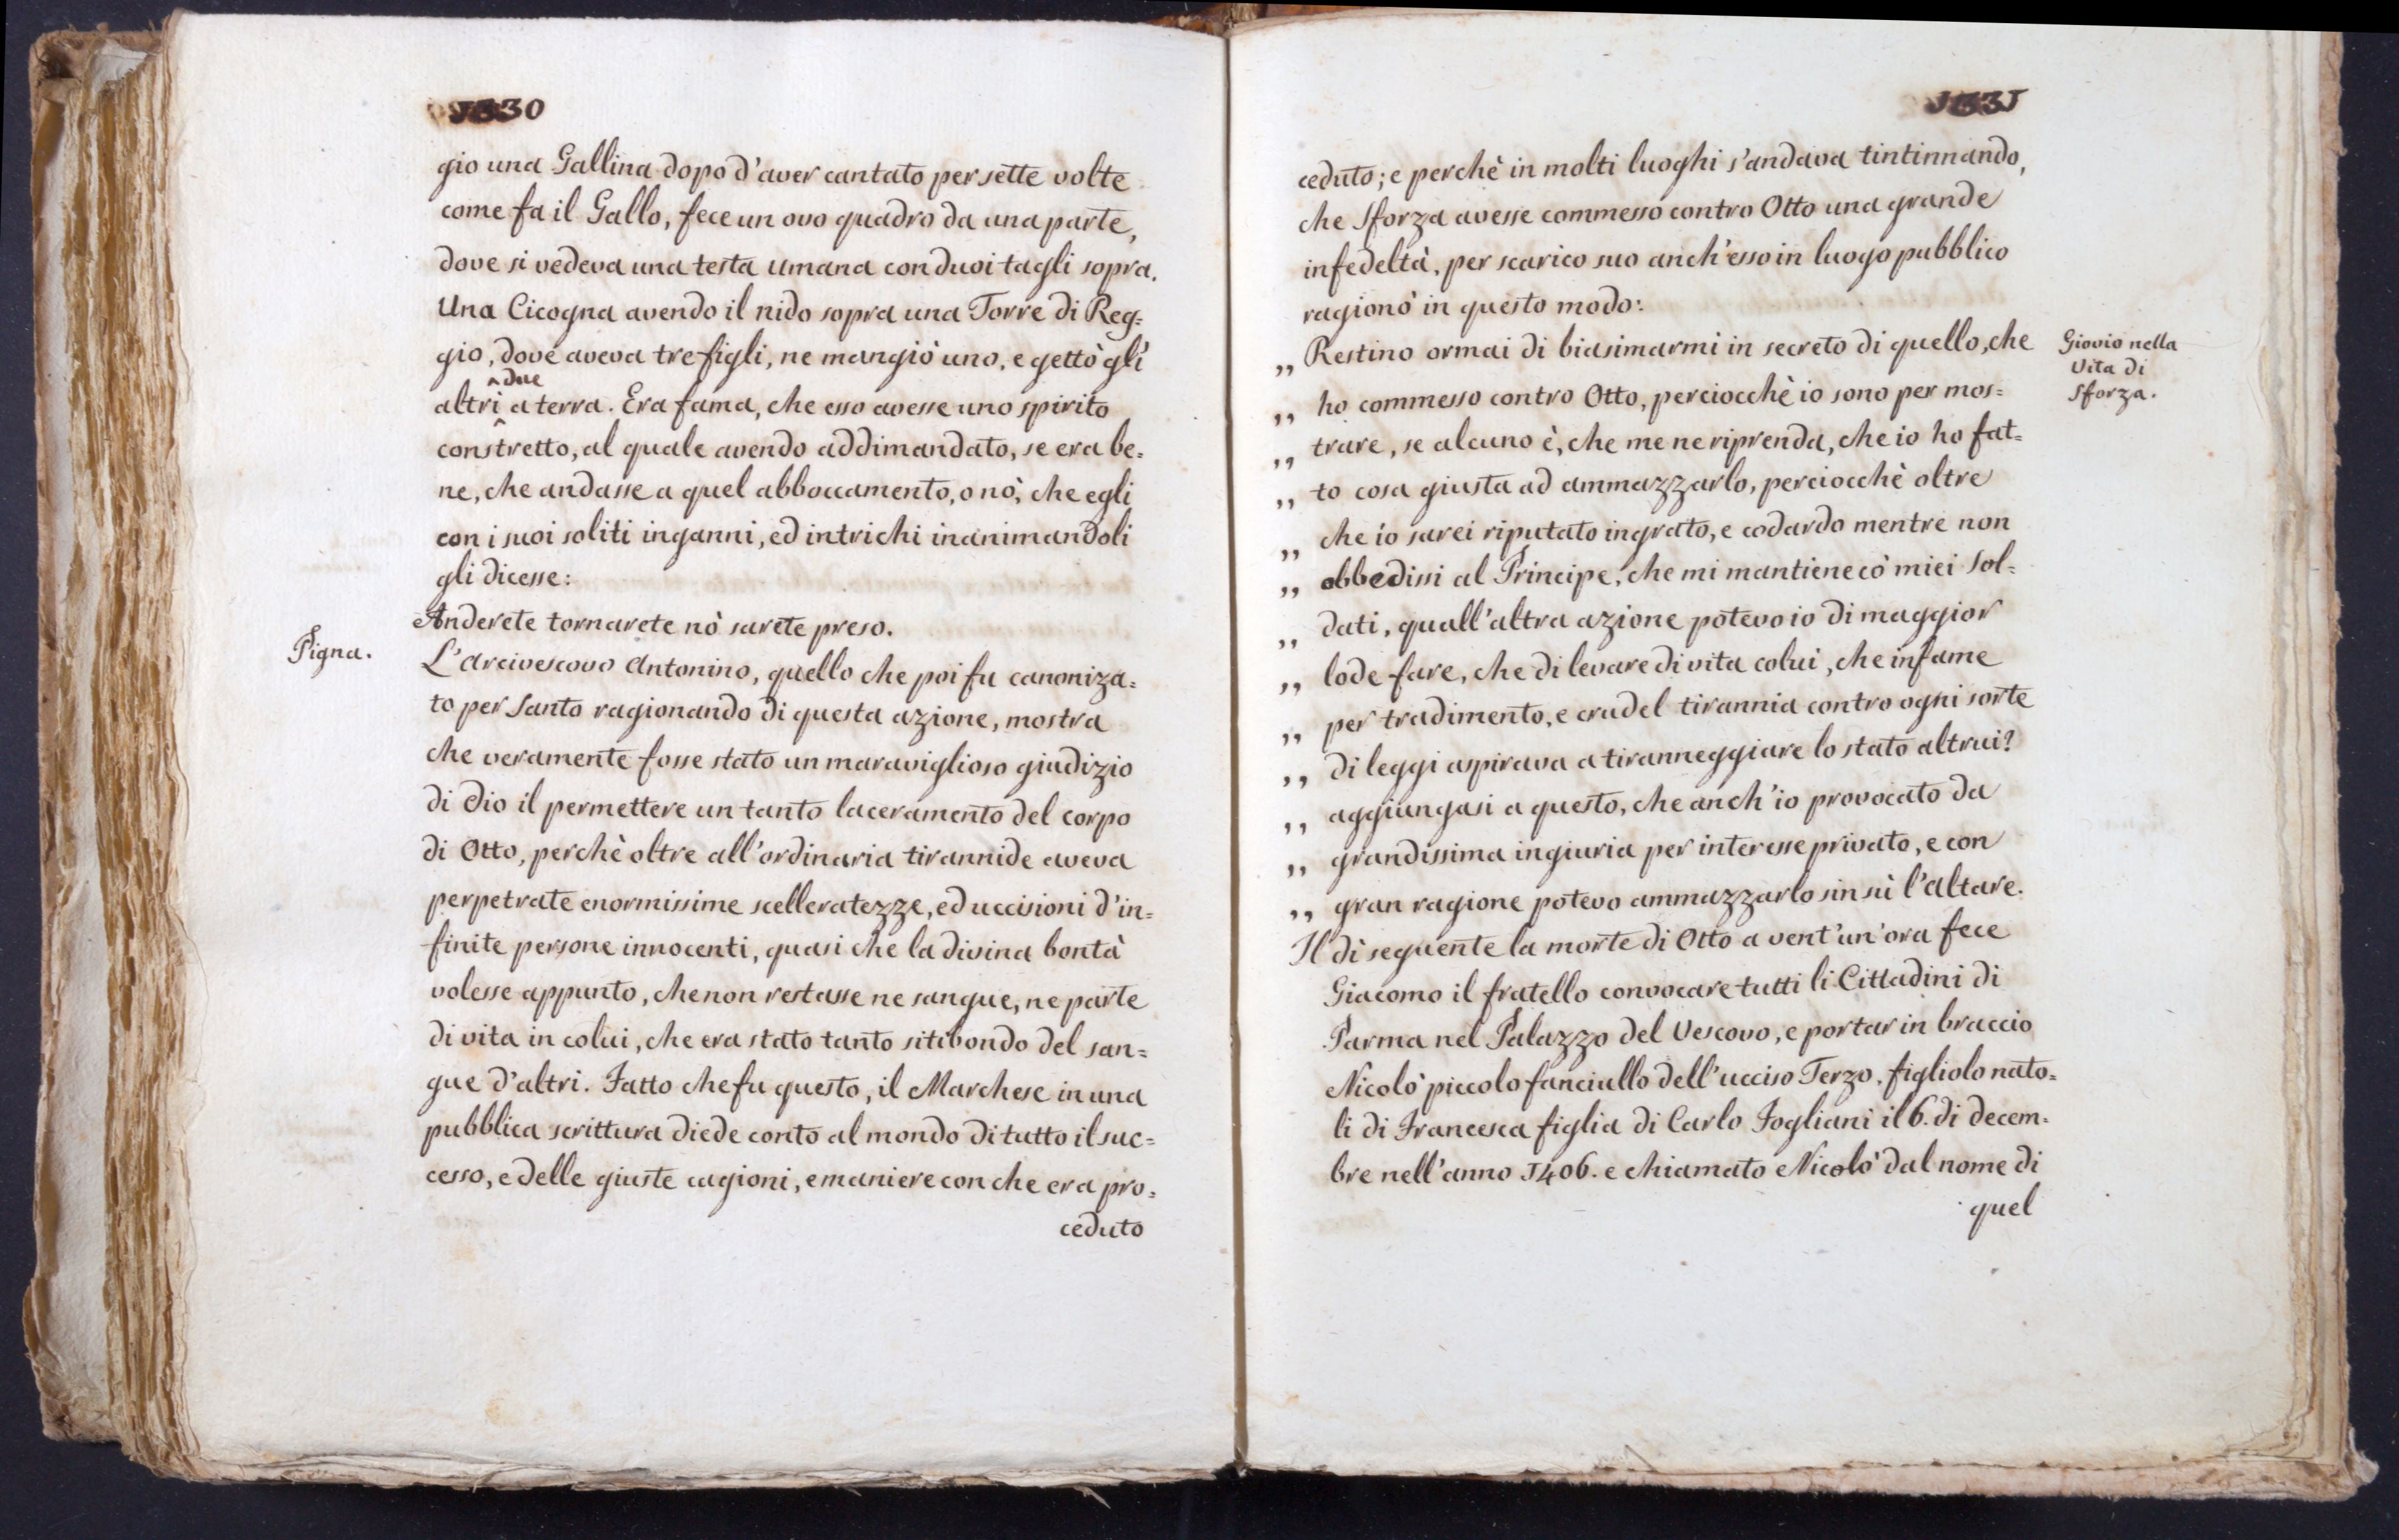 1330
gio una Gallina dopo d'aver cantato per sette volte
come fa il Gallo, fece un ovo quadro da una parte,
dove si vedeva una testa umana con duoi tagli sopra.
Una Cicogna avendo il nido sopra una Torre di Reg=
gio, dove aveva tre figli, ne mangiò uno, e gettò gli
altri ^due a terra. Era fama, che esso avesse uno spirito
constretto, al quale avendo addimandato, se era be=
ne, che andasse a quel abboccamento, o nò, che egli
con i suoi soliti inganni, ed intrichi inanimandoli
gli dicesse:
Anderete tornarete nò sarete preso.
Pigna.
L'Arcivescovo Antonino, quello che poi fu canoniza=
to per Santo ragionando di questa azione, mostra
che veramente fosse stato un maraviglioso giudizio
di Dio il permettere un tanto laceramento del corpo
di Otto, perchè oltre all'ordinaria tirannide aveva
perpetrate enormissime scelleratezze, ed uccisioni d'in=
finite persone innocenti, quasi che la divina bontà
volesse appunto, che non restasse ne sangue, ne parte
di vita in colui, che era stato tanto sitibondo del san=
gue d'altri. Fatto che fu questo, il Marchese in una
pubblica scrittura diede conto al mondo di tutto il suc=
cesso, e delle giuste cagioni, e maniere con che era pro=
ceduto
1331
ceduto; e perchè in molti luoghi s'andava tintinnando,
che Sforza avesse commesso contro Otto una grande
infedeltà, per scarico suo anch'esso in luogo pubblico
ragionò in questo modo:
Giovio nella
Vita di
Sforza.
,, Restino ormai di biasimarmi in secreto di quello, che
,, ho commesso contro Otto, perciocchè io sono per mos=
,, trare, se alcuno è, che me ne riprenda, che io ho fat=
,, to cosa giusta ad ammazzarlo, perciocchè oltre
,, che io sarei riputato ingrato, e codardo mentre non
,, obbedissi al Principe, che mi mantiene cò miei Sol=
,, dati, quall'altra azione potevo io di maggior
,, lode fare, che di levare di vita colui, che infame
,, per tradimento, e crudel tirannia contro ogni sorte
,, di leggi aspirava a tiranneggiare lo stato altrui?
,, aggiungasi a questo, che anch'io provocato da
,, grandissima ingiuria per interesse privato, e con
,, gran ragione potevo ammazzarlo sin sù l'Altare.
Il dì seguente la morte di Otto a vent'un'ora fece
Giacomo il fratello convocare tutti li Cittadini di
Parma nel Palazzo del Vescovo, e portar in braccio
Nicolò piccolo fanciullo dell'ucciso Terzo, figliolo nato=
li di Francesca figlia di Carlo Fogliani il 6. di decem=
bre nell'anno 1406. e chiamato Nicolò dal nome di
quel